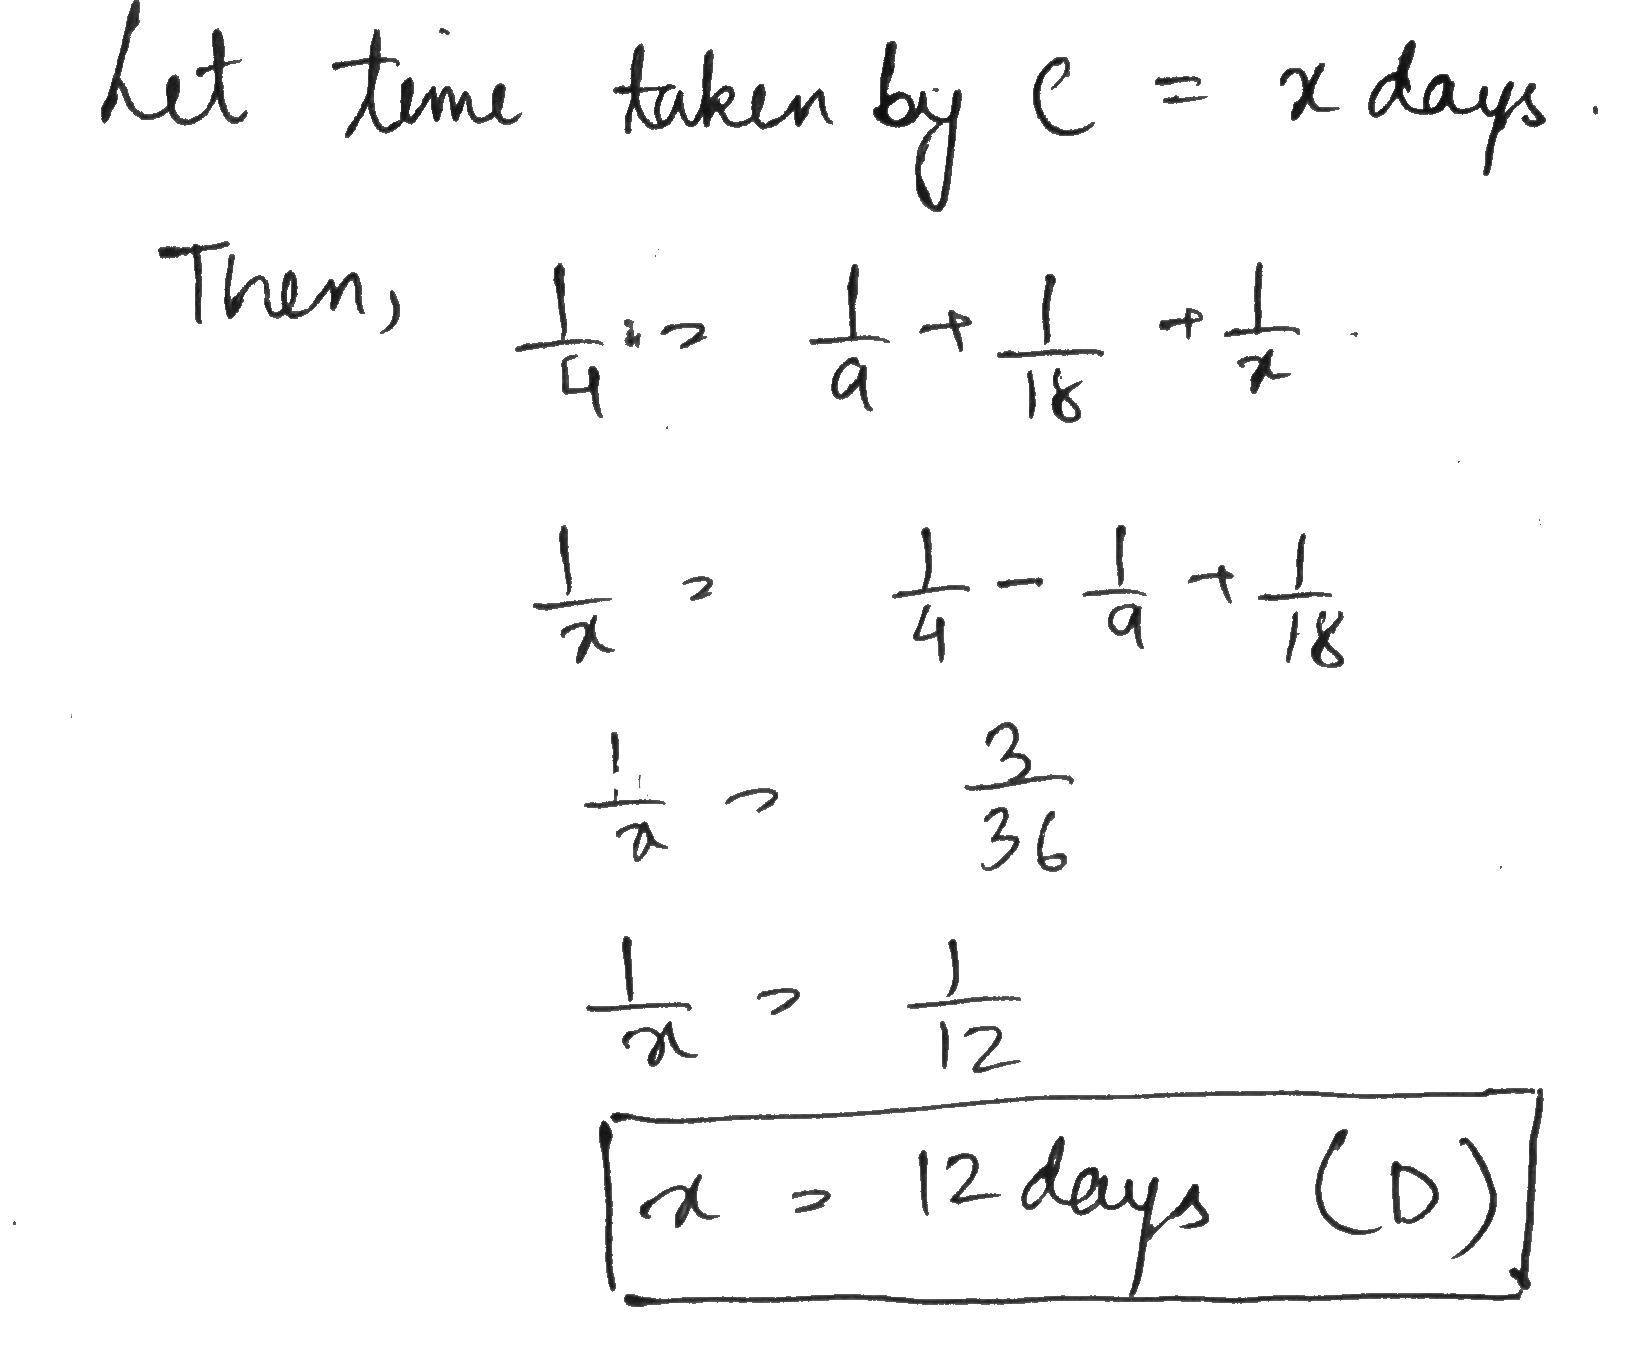 Let time taken by C = x days.
Then, 1/4 = 1/9 + 1/18 + 1/x
1/x = 1/4 - 1/9 + 1/18
1/x = 3/36
1/x = 1/12
x = 12 days (D)